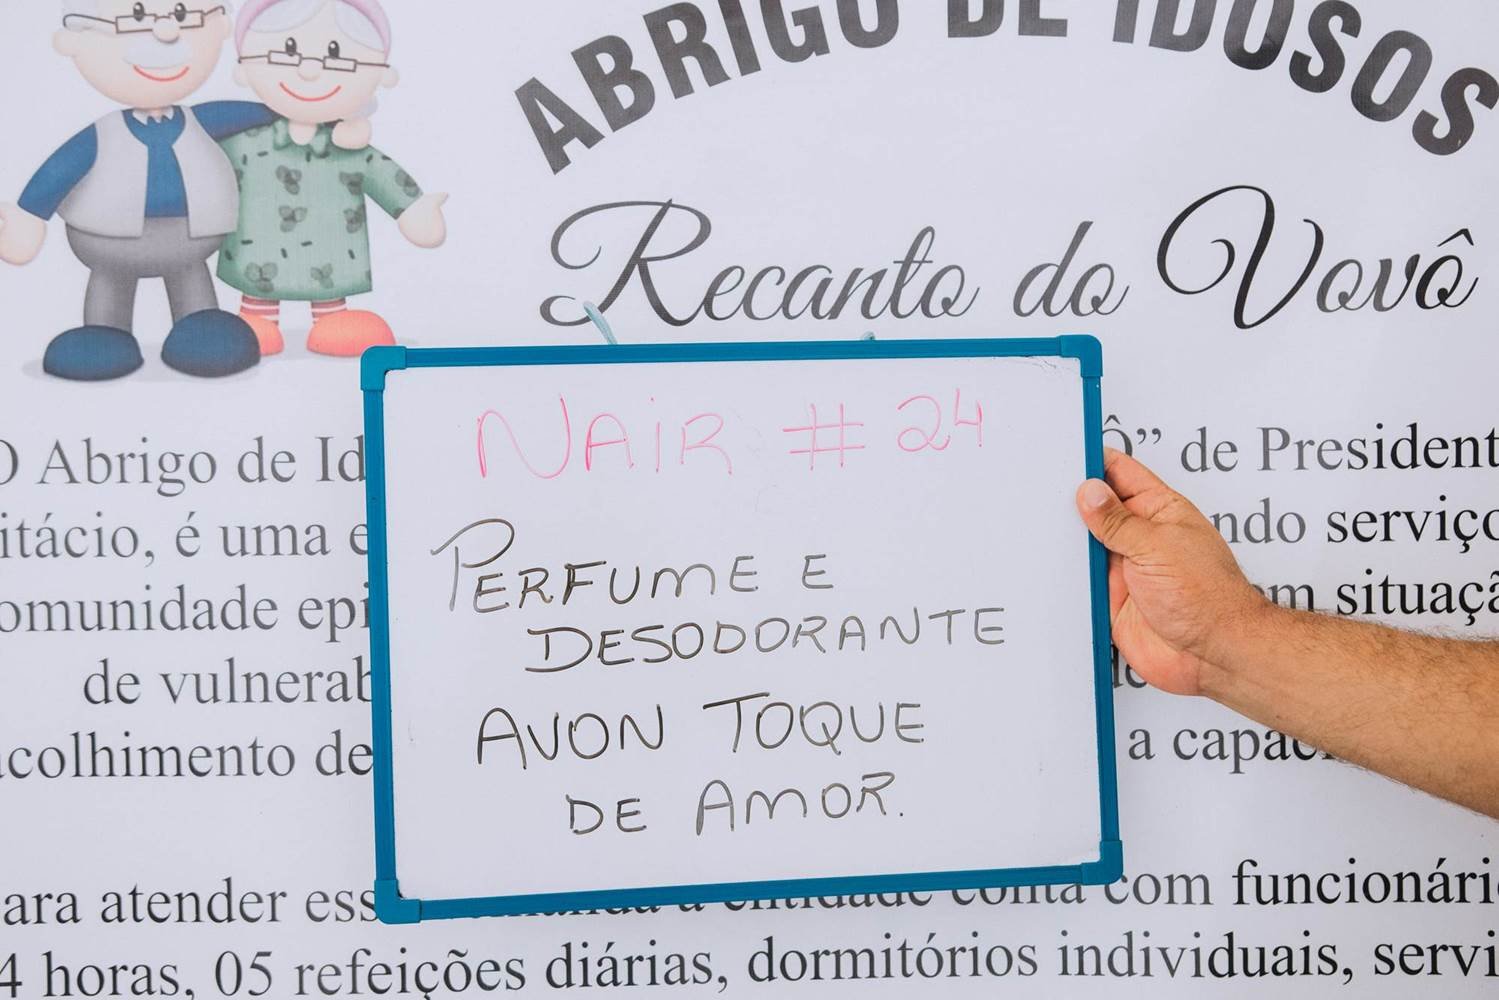 ABRIGO DE IDOSOS
Recanto do Vovô
NAiR # 24
PERFUME E
DESODORANTE
AVON TOQUE
DE AMOR.
O Abrigo de Id Ô” de President
itácio, é uma e ndo serviço
omunidade epi em situaçã
de vulnerab de
colhimento de a capac
ara atender ess manda a entidade conta com funcionári
4 horas, 05 refeições diárias, dormitórios individuais, servi